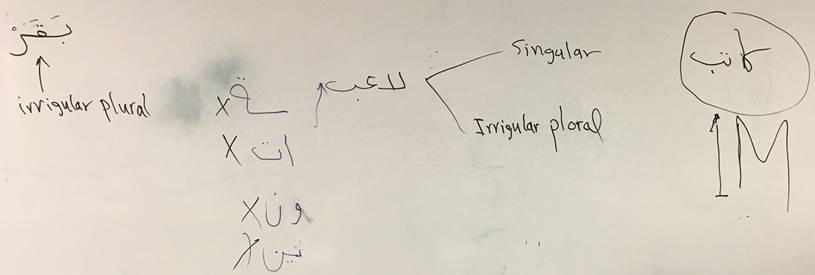 بَقَرْ
irrigular plural
ـة X
ات X
ون X
ين X
لاعب
Singular
Irrigular ploral
كاتب
1M